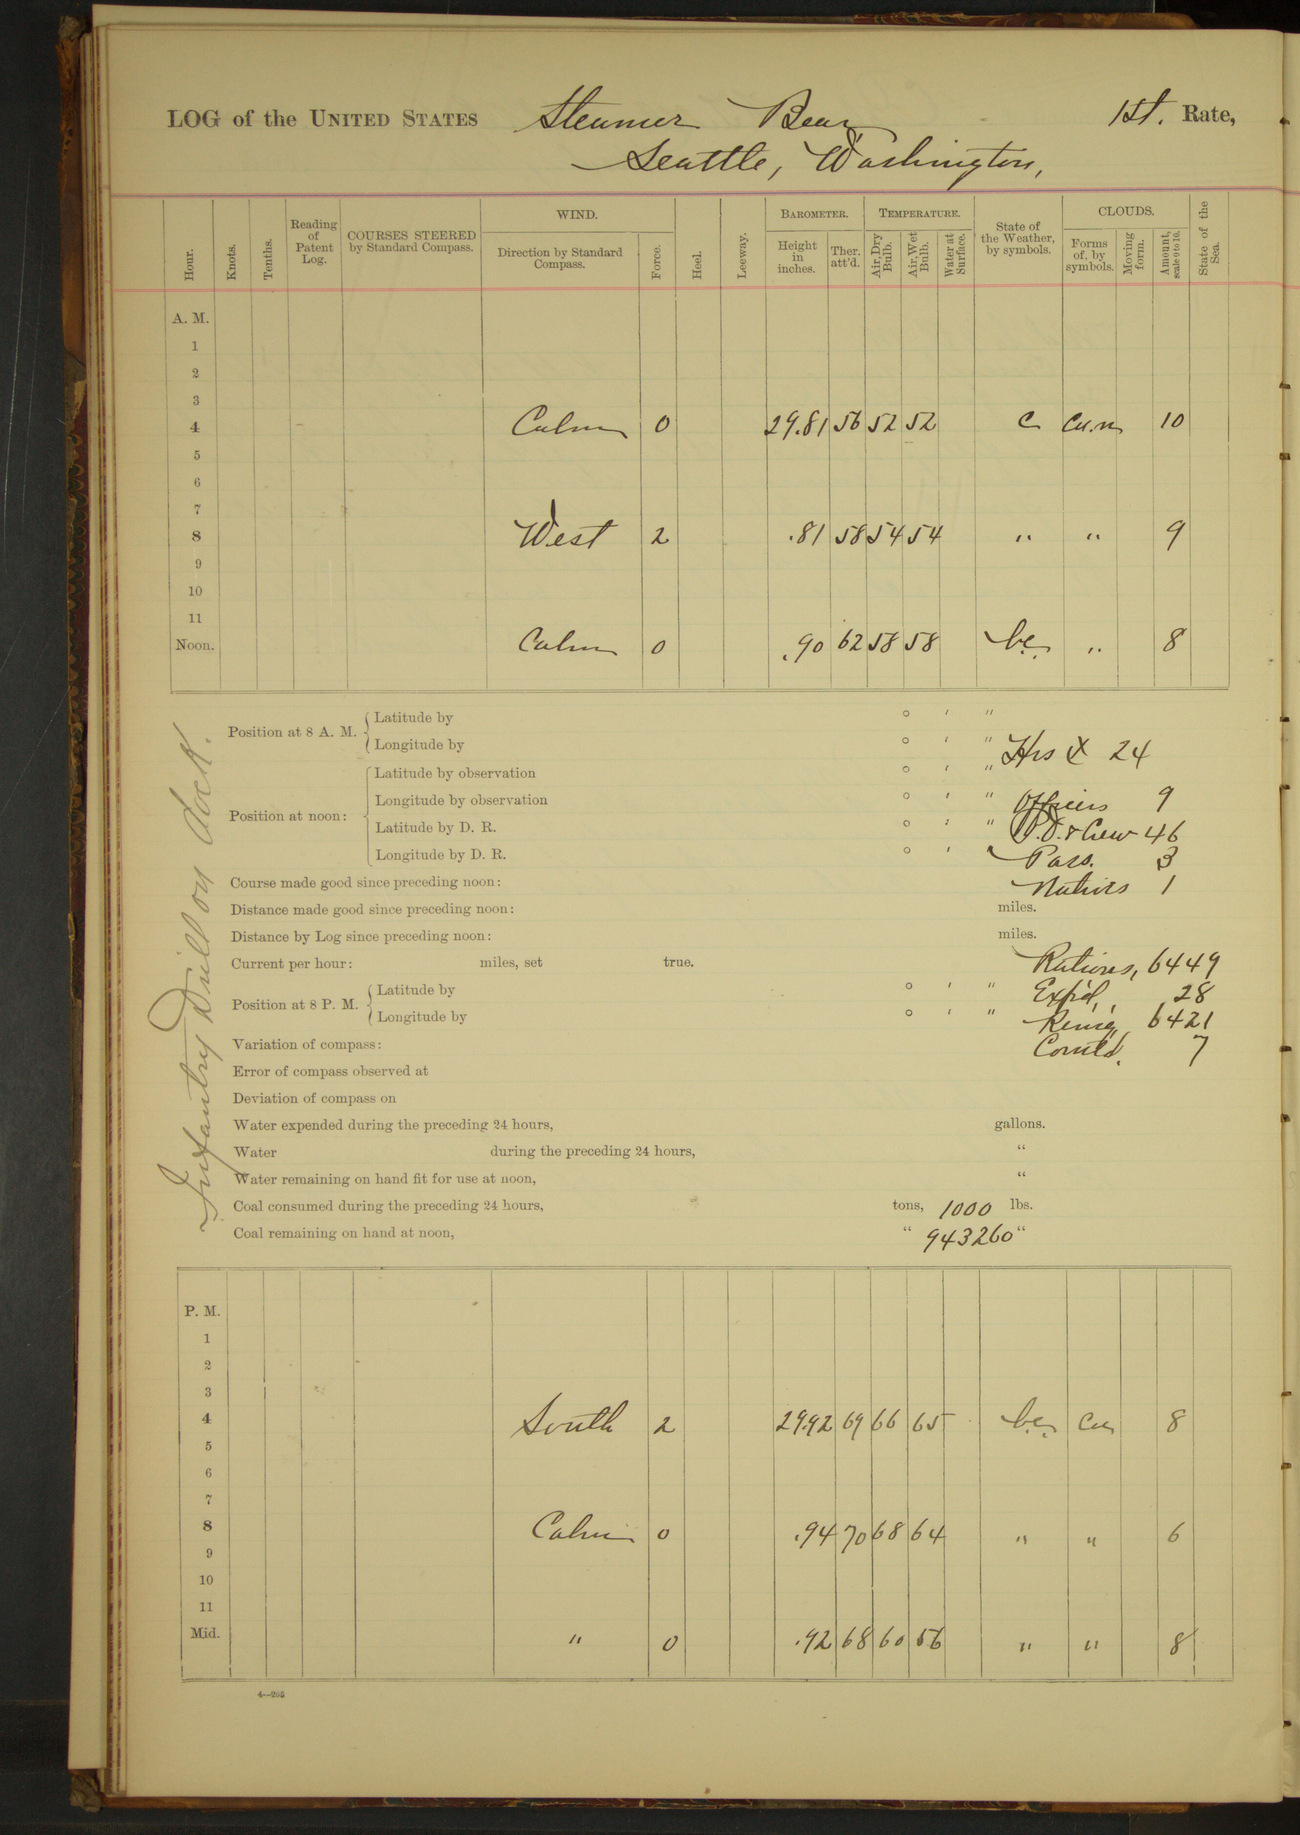 LOG of the UNITED STATES Steamer Bear 1st. Rate,
Seattle, Washington,
Hour. Knots. Tenths. Reading of Patent Log. COURSES STEERED by Standard Compass. WIND. Direction by Standard Compass. Force. Heel. Leeway. BAROMETER. Height in inches. Ther. att'd. TEMPERATURE. Air, Dry Bulb. Air, Wet Bulb. Water at Surface. State of the Weather, by symbols. CLOUDS. Forms of, by symbols. Moving form. Amount, scale 0 to 10. State of the Sea.
A. M.
1
2
3
4 Calm 0 29.81 56 52 52 c cu.n 10
5
6
7
8 West 2 .81 58 54 54 " " 9
9
10
11
Noon. Calm 0 .90 62 58 58 b.c. " 8
Position at 8 A. M. Latitude by ° ' "
Longitude by ° ' " Hrs 24
Position at noon: Latitude by observation ° ' "
Longitude by observation ° ' " Officers 9
Latitude by D. R. ° ' " P.O. & Crew 46
Longitude by D. R. ° ' " Pass. 3
Course made good since preceding noon: Natives 1
Distance made good since preceding noon: miles.
Distance by Log since preceding noon: miles.
Current per hour: miles, set true. Rations, 6449
Position at 8 P. M. Latitude by ° ' " Exp'd, 28
Longitude by ° ' " Remg 6421
Variation of compass: Comtd. 7
Error of compass observed at
Deviation of compass on
Water expended during the preceding 24 hours, gallons.
Water during the preceding 24 hours, "
Water remaining on hand fit for use at noon, "
Coal consumed during the preceding 24 hours, tons, 1000 lbs.
Coal remaining on hand at noon, " 943260 "
Infantry Drill on dock.
P. M.
1
2
3
4 South 2 29.92 69 66 65 b.c. cu 8
5
6
7
8 Calm 0 .94 70 68 64 " " 6
9
10
11
Mid. " 0 .92 68 60 56 " " 8
4—205